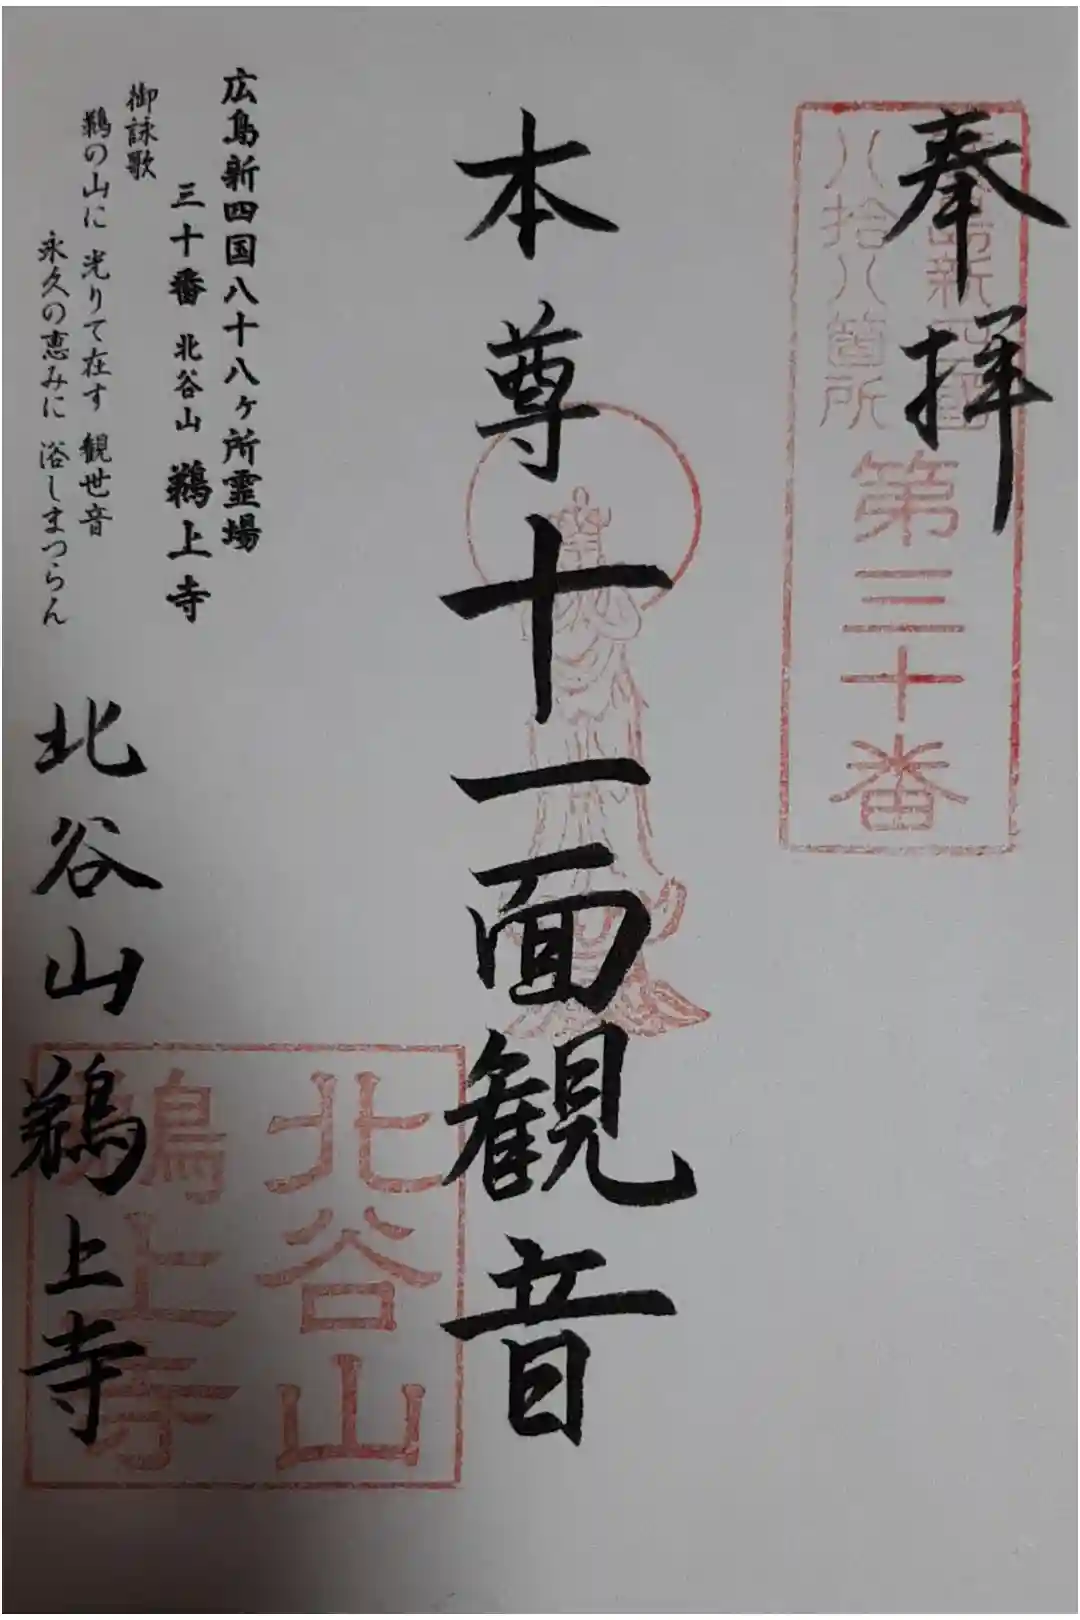 奉拝
広島新四国
八拾八箇所
第三十番
本尊十一面観音
広島新四国八十八ヶ所霊場
三十番 北谷山 鵜上寺
御詠歌
鵜の山に 光りて在す 観世音
永久の恵みに 浴しまつらん
北谷山 鵜上寺
北谷山
鵜上寺